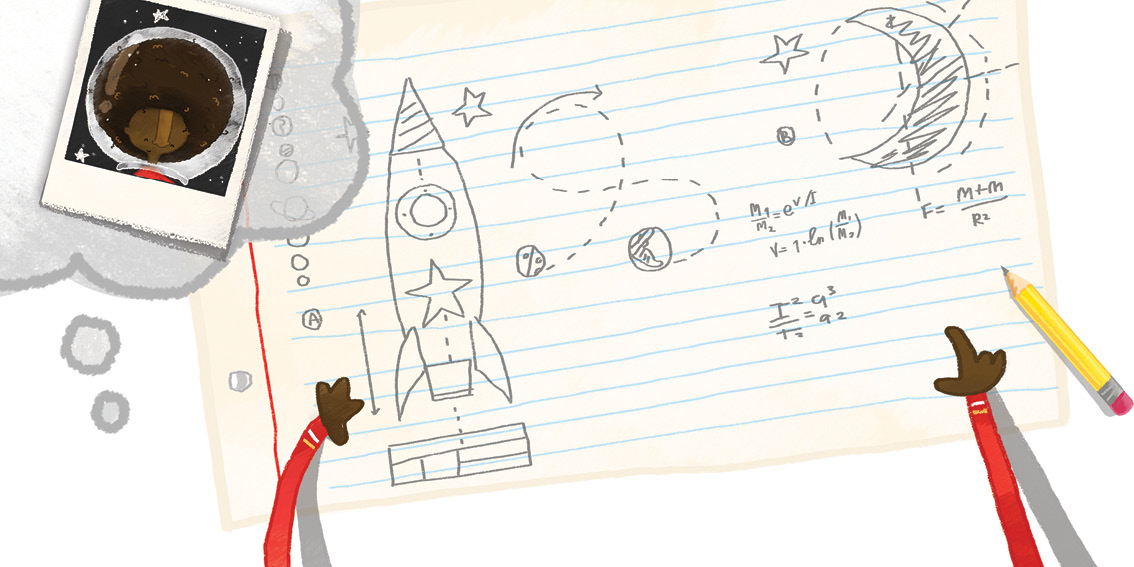 A
B
M1/M2 = e^V/I
V = 1·ln(M1/M2)
F = M+M/R2
I^2/T2 = a^3/a2